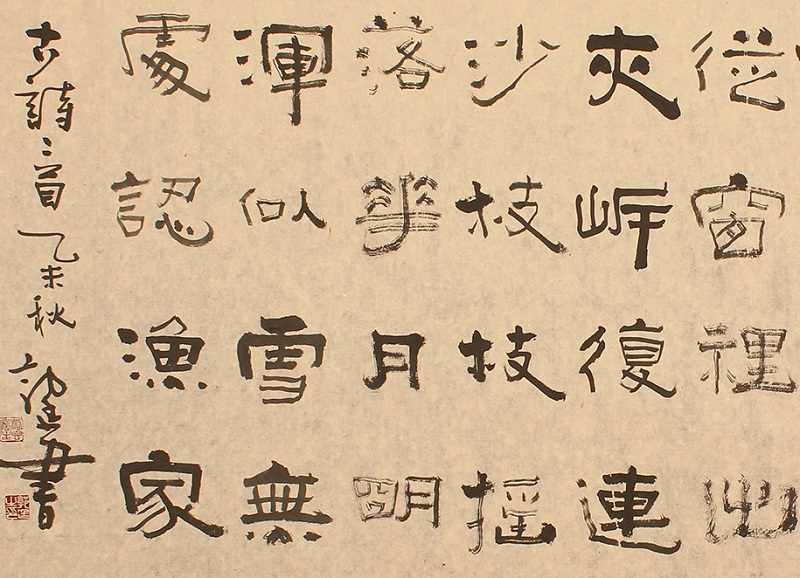 從窗裡出
夾岸復連
沙枝枝搖
落華月明
渾似雪無
處認漁家
古詩二首乙未秋書